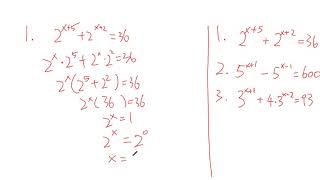 1. 2^{x+5} + 2^{x+2} = 36
2^x · 2^5 + 2^x · 2^2 = 36
2^x (2^5 + 2^2) = 36
2^x (36) = 36
2^x = 1
2^x = 2^0
x =
1. 2^{x+5} + 2^{x+2} = 36
2. 5^{x+1} - 5^{x-1} = 600
3. 3^{x+1} + 4·3^{x-2} = 93